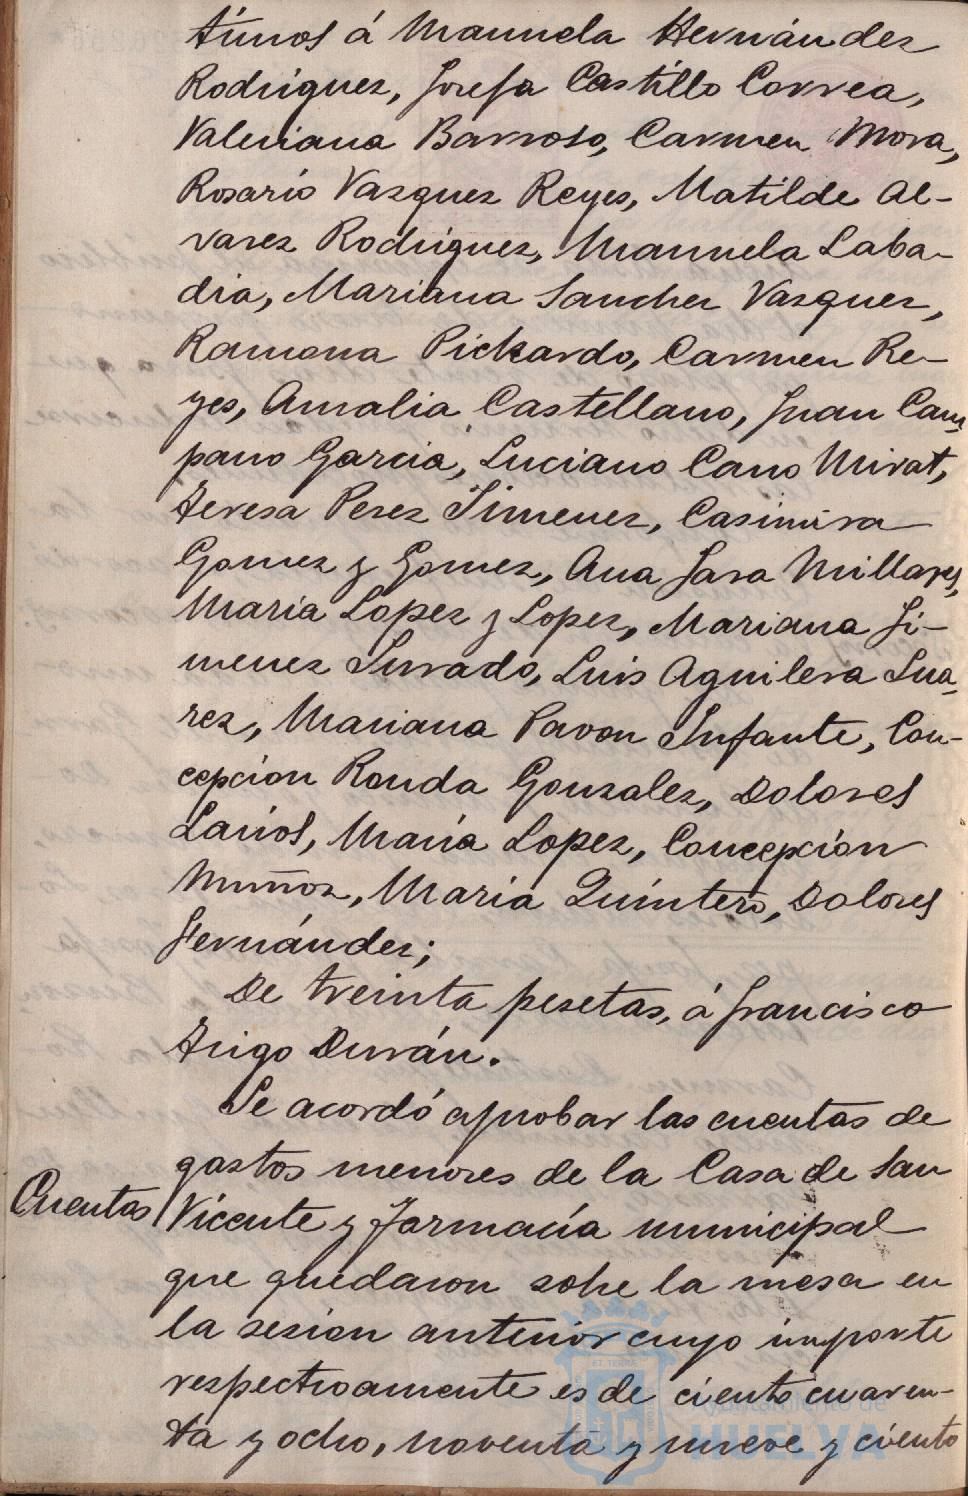 timos á Manuela Hernández
Rodriguez, Josefa Castillo Correa,
Valeriana Barroso, Carmen Mora,
Rosario Vazquez Reyes, Matilde Al-
varez Rodriguez, Manuela Laba-
dia, Mariana Sanchez Vazquez,
Ramona Pickardo, Carmen Re-
yes, Amalia Castellano, Juan Cam-
pano Garcia, Luciano Cano Mirat,
Teresa Perez Jimenez, Casimira
Gomez y Gomez, Ana Jara Millares,
Maria Lopez y Lopez, Mariana Ji-
menez Jurado, Luis Aguilera Sua-
rez, Mariana Pavon Infante, Con-
cepcion Ronda Gonzalez, Dolores
Larios, María Lopez, Concepción
Muñoz, Maria Quintero, Dolores
Hernández;
De treinta pesetas, á Francisco
Trigo Durán.
Se acordó aprobar las cuentas de
gastos menores de la Casa de San
Cuentas Vicente y Farmacía municipal
que quedaron sobre la mesa en
la sesion anterior cuyo importe
respectivamente es de ciento cuaren-
ta y ocho, noventa y nueve y ciento
Ayuntamiento de
HUELVA